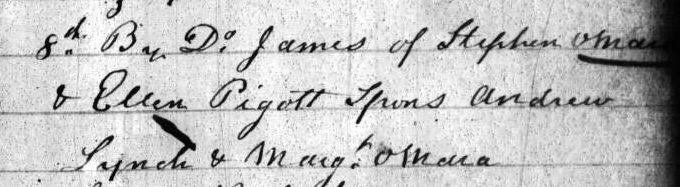 8th. By Do. James of Stephen OMara
& Ellen Pigott Spons Andrew
Lynch & Margt. OMara